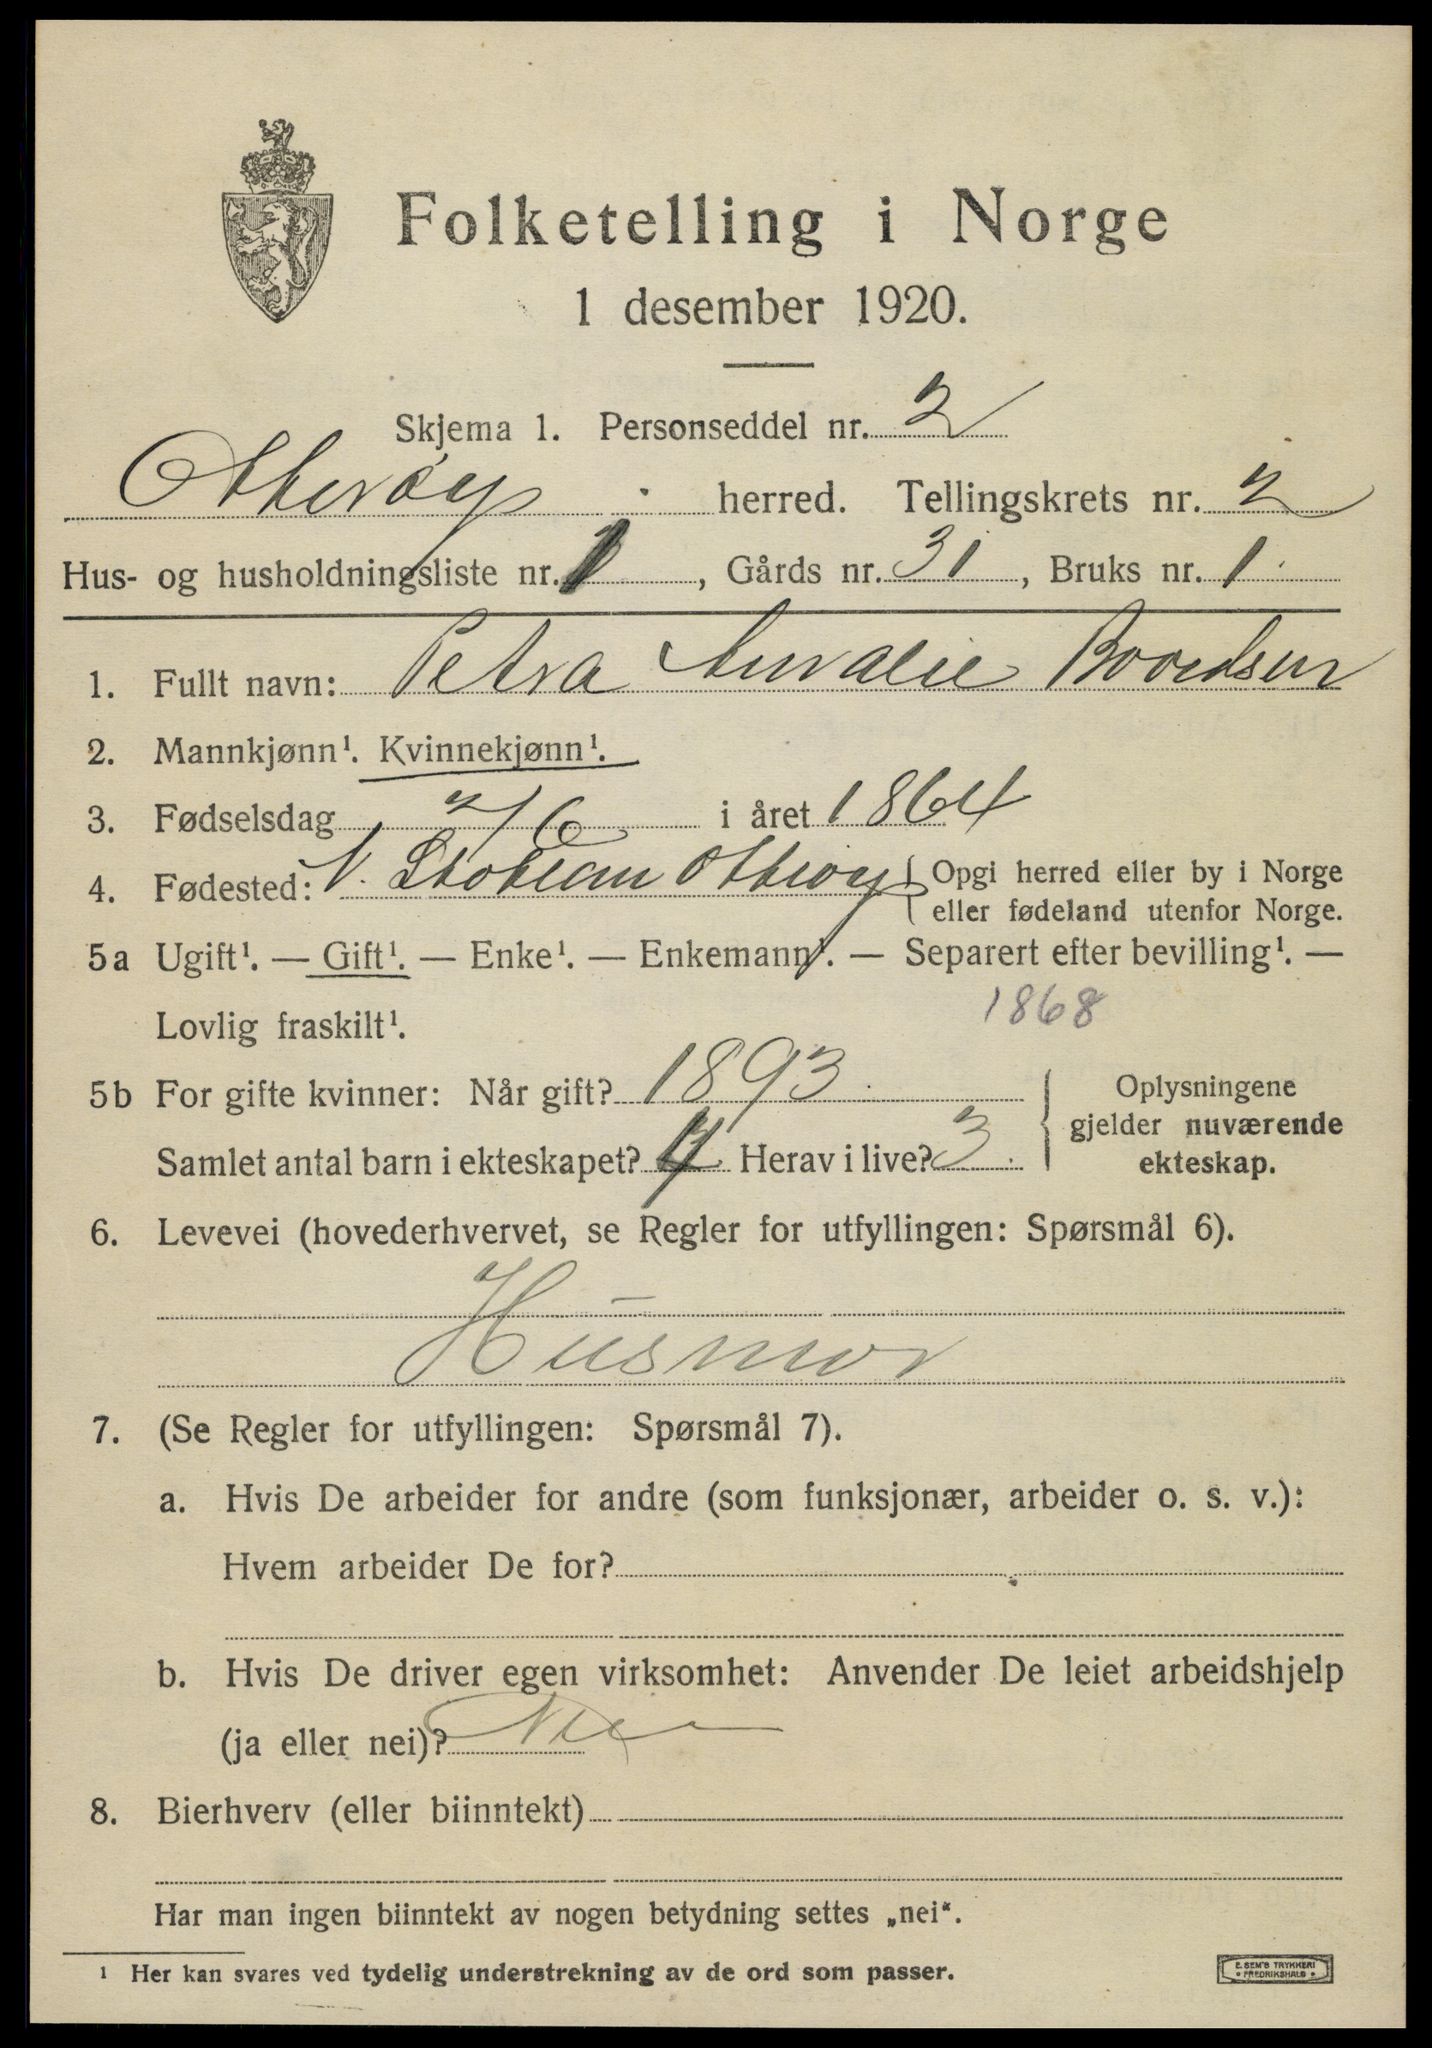 Folketelling i Norge
1 desember 1920.
Skjema 1. Personseddel nr. 2
Otterøy herred. Tellingskrets nr. 2
Hus- og husholdningsliste nr. 1, Gårds nr. 31, Bruks nr. 1
1. Fullt navn: Petra Amalie
2. Mannkjønn¹. Kvinnekjønn¹.
3. Fødselsdag 2/6 i året 1864
4. Fødested: N. Otterøy { Opgi herred eller by i Norge
eller fødeland utenfor Norge.
5a Ugift¹. — Gift¹. — Enke¹. — Enkemann¹. — Separert efter bevilling¹. —
Lovlig fraskilt¹. 1868
5b For gifte kvinner: Når gift? 1893. } Oplysningene
gjelder nuværende
ekteskap.
Samlet antal barn i ekteskapet? 4 Herav i live? 3.
6. Levevei (hovederhvervet, se Regler for utfyllingen: Spørsmål 6).
Husmor
7. (Se Regler for utfyllingen: Spørsmål 7).
a. Hvis De arbeider for andre (som funksjonær, arbeider o. s. v.):
Hvem arbeider De for?
b. Hvis De driver egen virksomhet: Anvender De leiet arbeidshjelp
(ja eller nei)? Nei
8. Bierhverv (eller biinntekt)
Har man ingen biinntekt av nogen betydning settes „nei“.
¹ Her kan svares ved tydelig understrekning av de ord som passer.
E. SEM'S TRYKKERI
FREDRIKSHALD